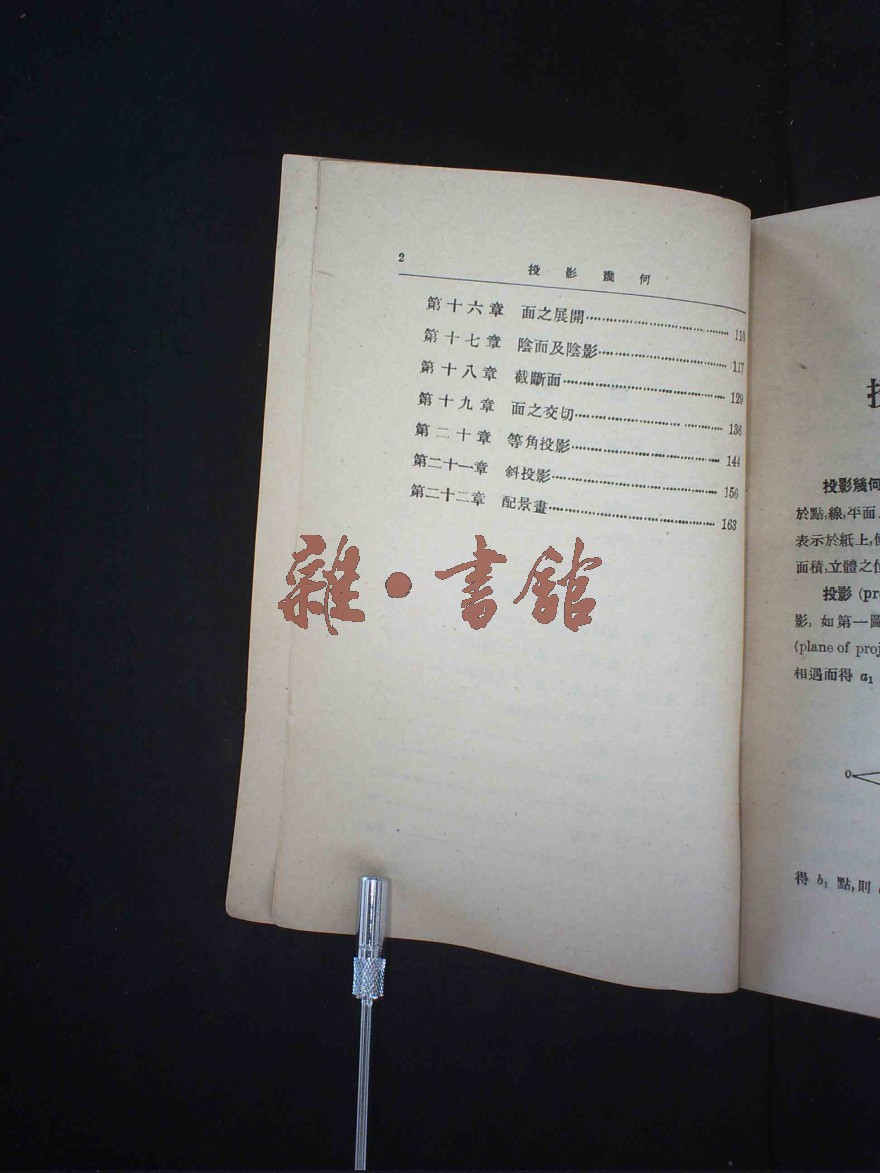 2
投影幾何
第十六章 面之展開 110
第十七章 陰面及陰影 117
第十八章 截斷面 129
第十九章 面之交切 136
第二十章 等角投影 144
第二十一章 斜投影 156
第二十二章 配景畫 163
雜·書館
投影幾何
於點,線,平面
表示於紙上,
面積,立體之位
投影 (pro
影, 如第一圖
(plane of proj
相遇而得 a₁
O
得 b₁ 點,則